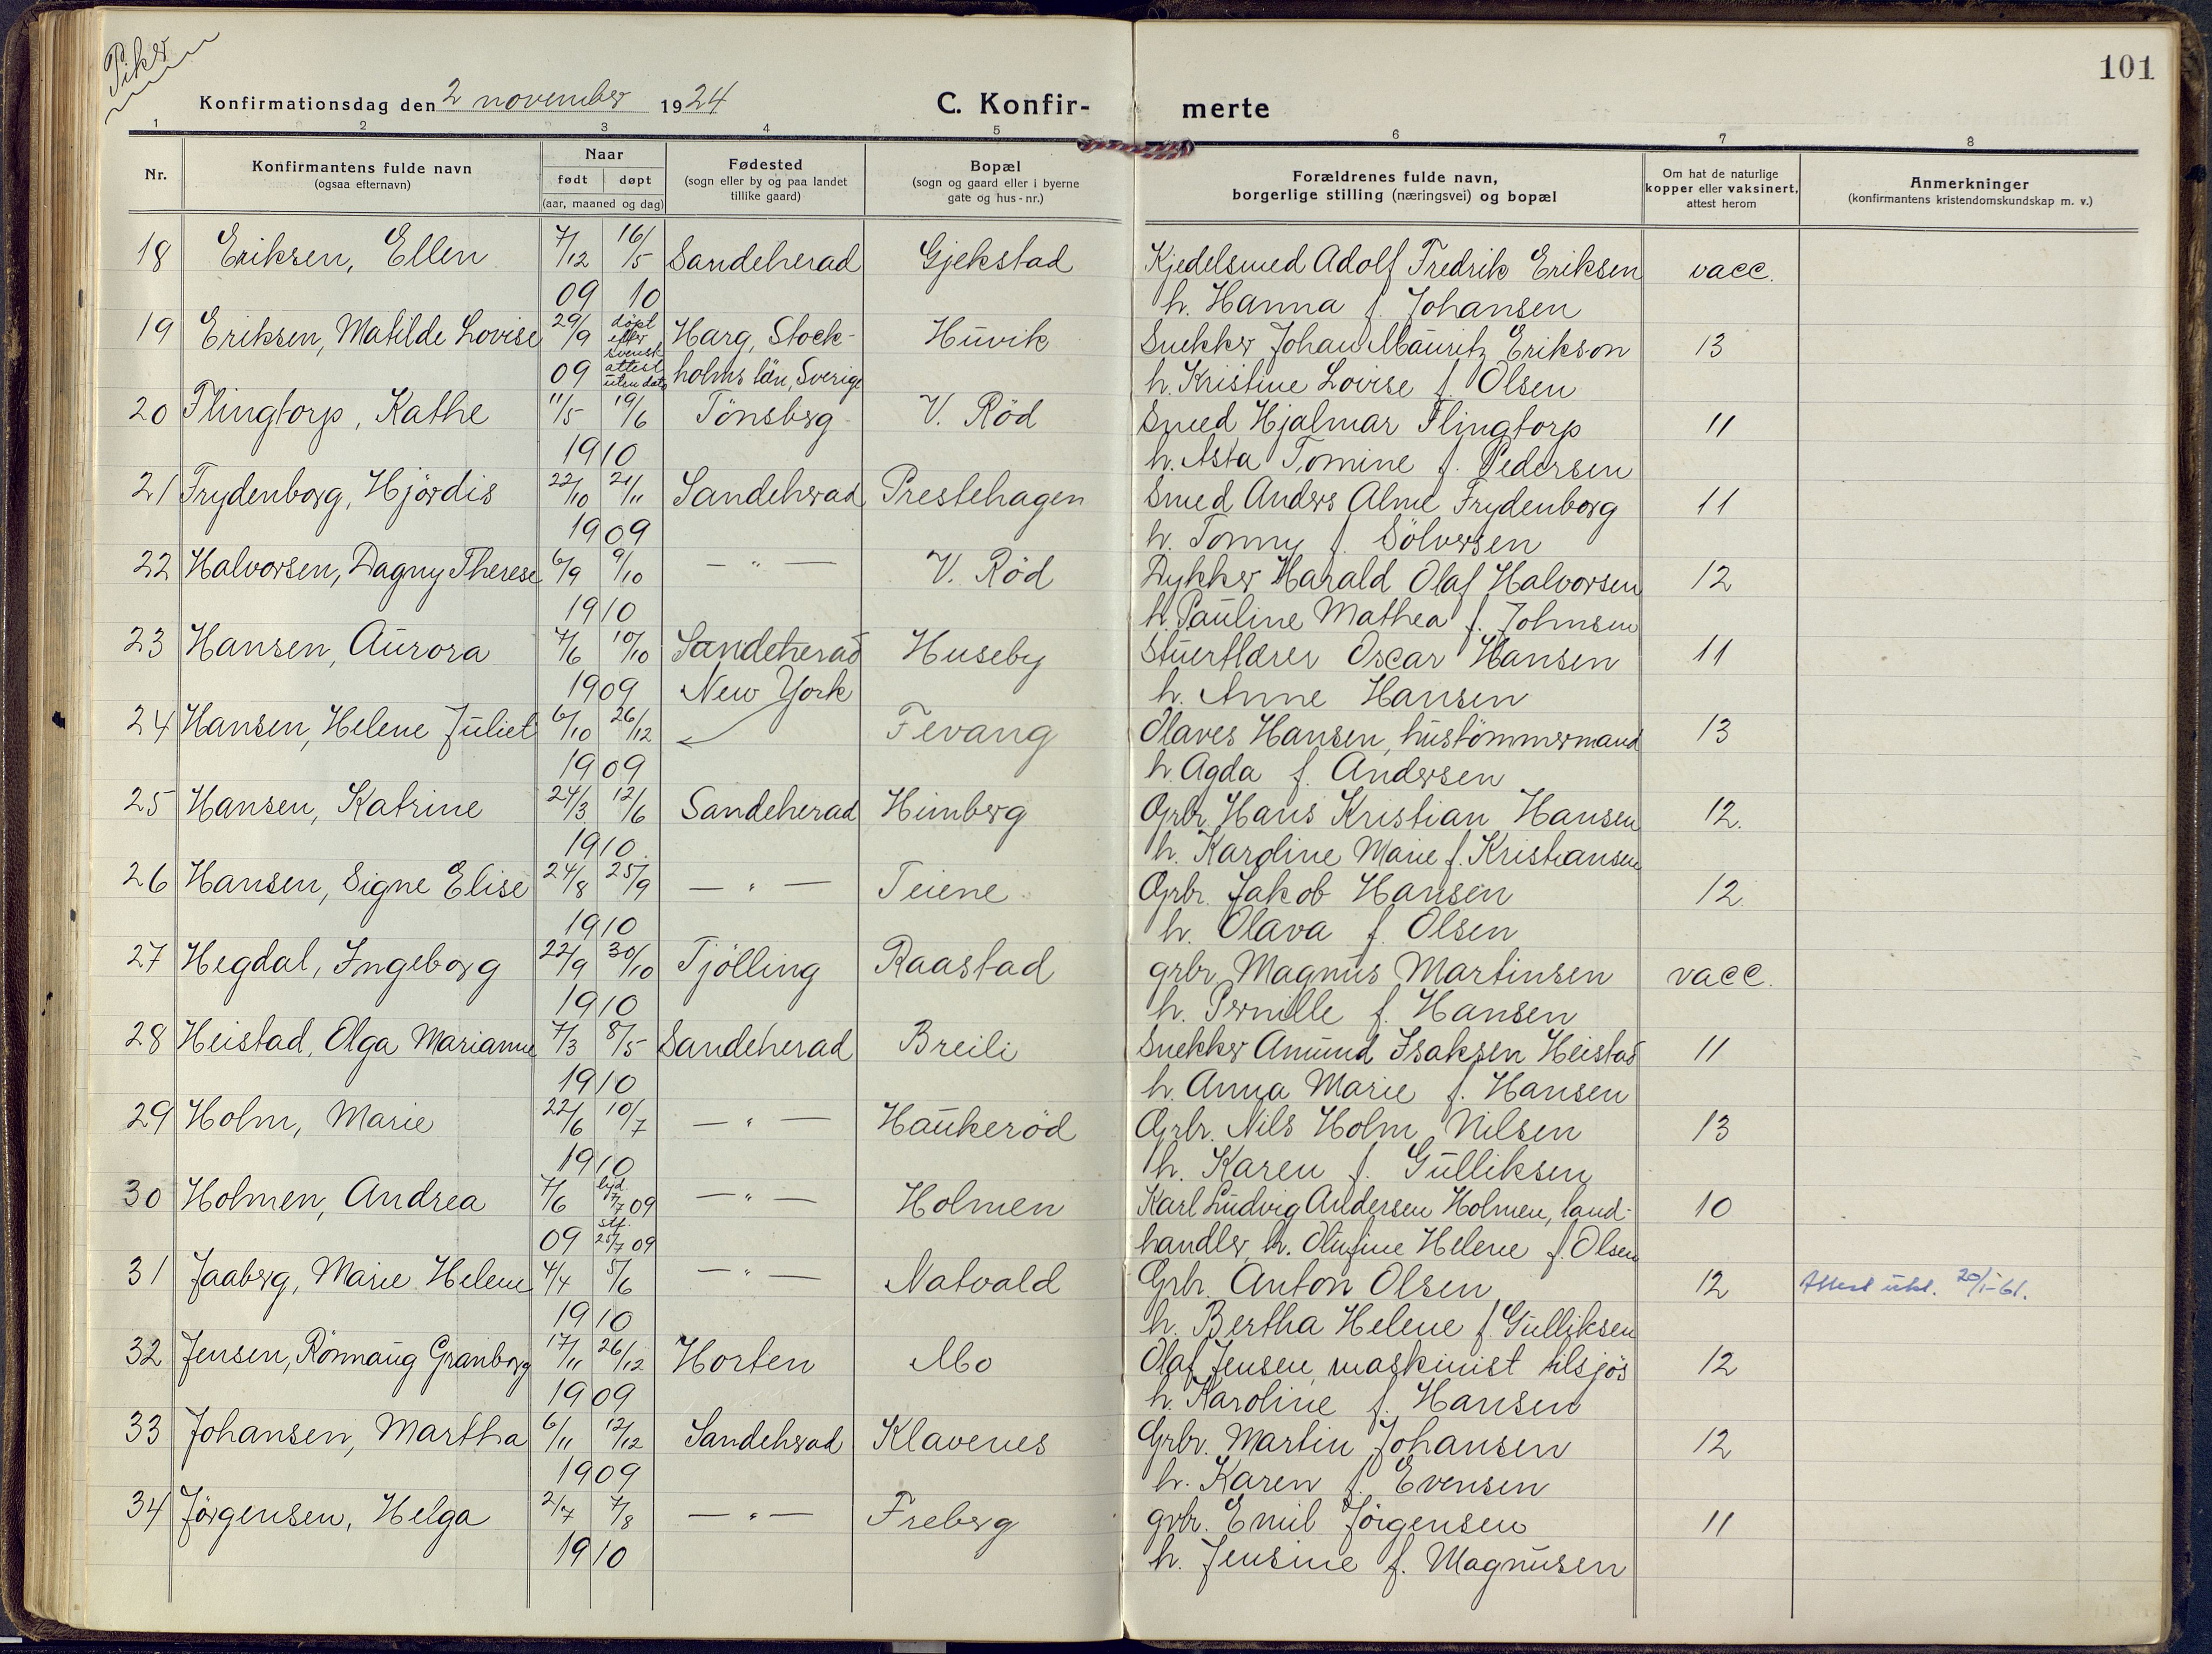 Piker
101
Konfirmationsdag den 2 november 1924
C. Konfir- merte
1 2 3 4 5 6 7 8
Nr.
Konfirmantens fulde navn
(ogsaa efternavn)
Naar
født døpt
(aar, maaned og dag)
Fødested
(sogn eller by og paa landet
tillike gaard)
Bopæl
(sogn og gaard eller i byerne
gate og hus-nr.)
Forældrenes fulde navn,
borgerlige stilling (næringsvei) og bopæl
Om hat de naturlige
kopper eller vaksinert,
attest herom
Anmerkninger
(konfirmantens kristendomskundskap m. v.)
18 Eriksen, Ellen 7/12 16/5 Sandeherad Gjekstad Kjedelsmed Adolf Fredrik Eriksen vacc.
09 10 h. Hanna f. Johansen
19 Eriksen, Matilde Lovise 29/9 døpt efter svensk Harg, Stock- Huvik Snekker Johan Mauritz Erikson 13
09 attest uten dato holms län, Sverige h. Kristine Lovise f. Olsen
20 Flingtorp, Kathe 11/5 19/6 Tönsberg V. Röd Smed Hjalmar Flingtorp 11
1910 h. Asta Tomine f. Pedersen
21 Frydenborg, Hjördis 22/10 21/11 Sandeherad Prestehagen Smed Anders Alme Frydenborg 11
1909 h. Tonny f. Sölversen
22 Halvorsen, Dagny Therese 6/9 9/10 — " — V. Röd Dykker Harald Olaf Halvorsen 12
1910 h. Pauline Mathea f. Johnsen
23 Hansen, Aurora 7/6 10/10 Sandeherad Huseby Stuertlærer Oscar Hansen 11
1909 New York h. Anne Hansen
24 Hansen, Helene Juliet 6/10 26/12 Fevang Olaves Hansen, hustömmermand 13
1909 h. Agda f. Andersen
25 Hansen, Katrine 24/3 12/6 Sandeherad Himberg Grbr. Hans Kristian Hansen 12.
1910. h. Karoline Marie f. Kristiansen
26 Hansen, Signe Elise 24/8 25/9 — " — Teiene Grbr. Jakob Hansen 12.
1910 h. Olava f. Olsen
27 Hegdal, Ingeborg 22/9 30/10 Tjölling Raastad grbr. Magnus Martinsen vacc.
1910 h. Pernille f. Hansen
28 Heistad, Olga Marianne 7/3 8/5 Sandeherad Breili Snekker Amund Isaksen Heistad 11
1910 h. Anna Marie f. Hansen
29 Holm, Marie 22/6 10/7 — " — Haukeröd Grbr. Nils Holm Nilsen 13
1910 h. Karen f. Gulliksen
30 Holmen, Andrea 7/6 7/7 09 — " — Holmen Karl Ludvig Andersen Holmen, land- 10
09 stf. 25/7 09 handler, h. Olufine Helene f. Olsen
31 Jaaberg, Marie Helene 4/4 5/6 — " — Natvald Grbr. Anton Olsen 12 Attest utst. 20/1-61.
1910 h. Bertha Helene f. Gulliksen
32 Jensen, Rönnaug Granborg 17/11 26/12 Horten Mo Olaf Jensen, maskinist tilsjös 12
1909 h. Karoline f. Hansen
33 Johansen, Martha 6/11 12/12 Sandeherad Klavenes Grbr. Martin Johansen 12
1909 h. Karen f. Evensen
34 Jörgensen, Helga 2/7 7/8 — " — Freberg grbr. Emil Jörgensen 11
1910 h. Jensine f. Magnusen